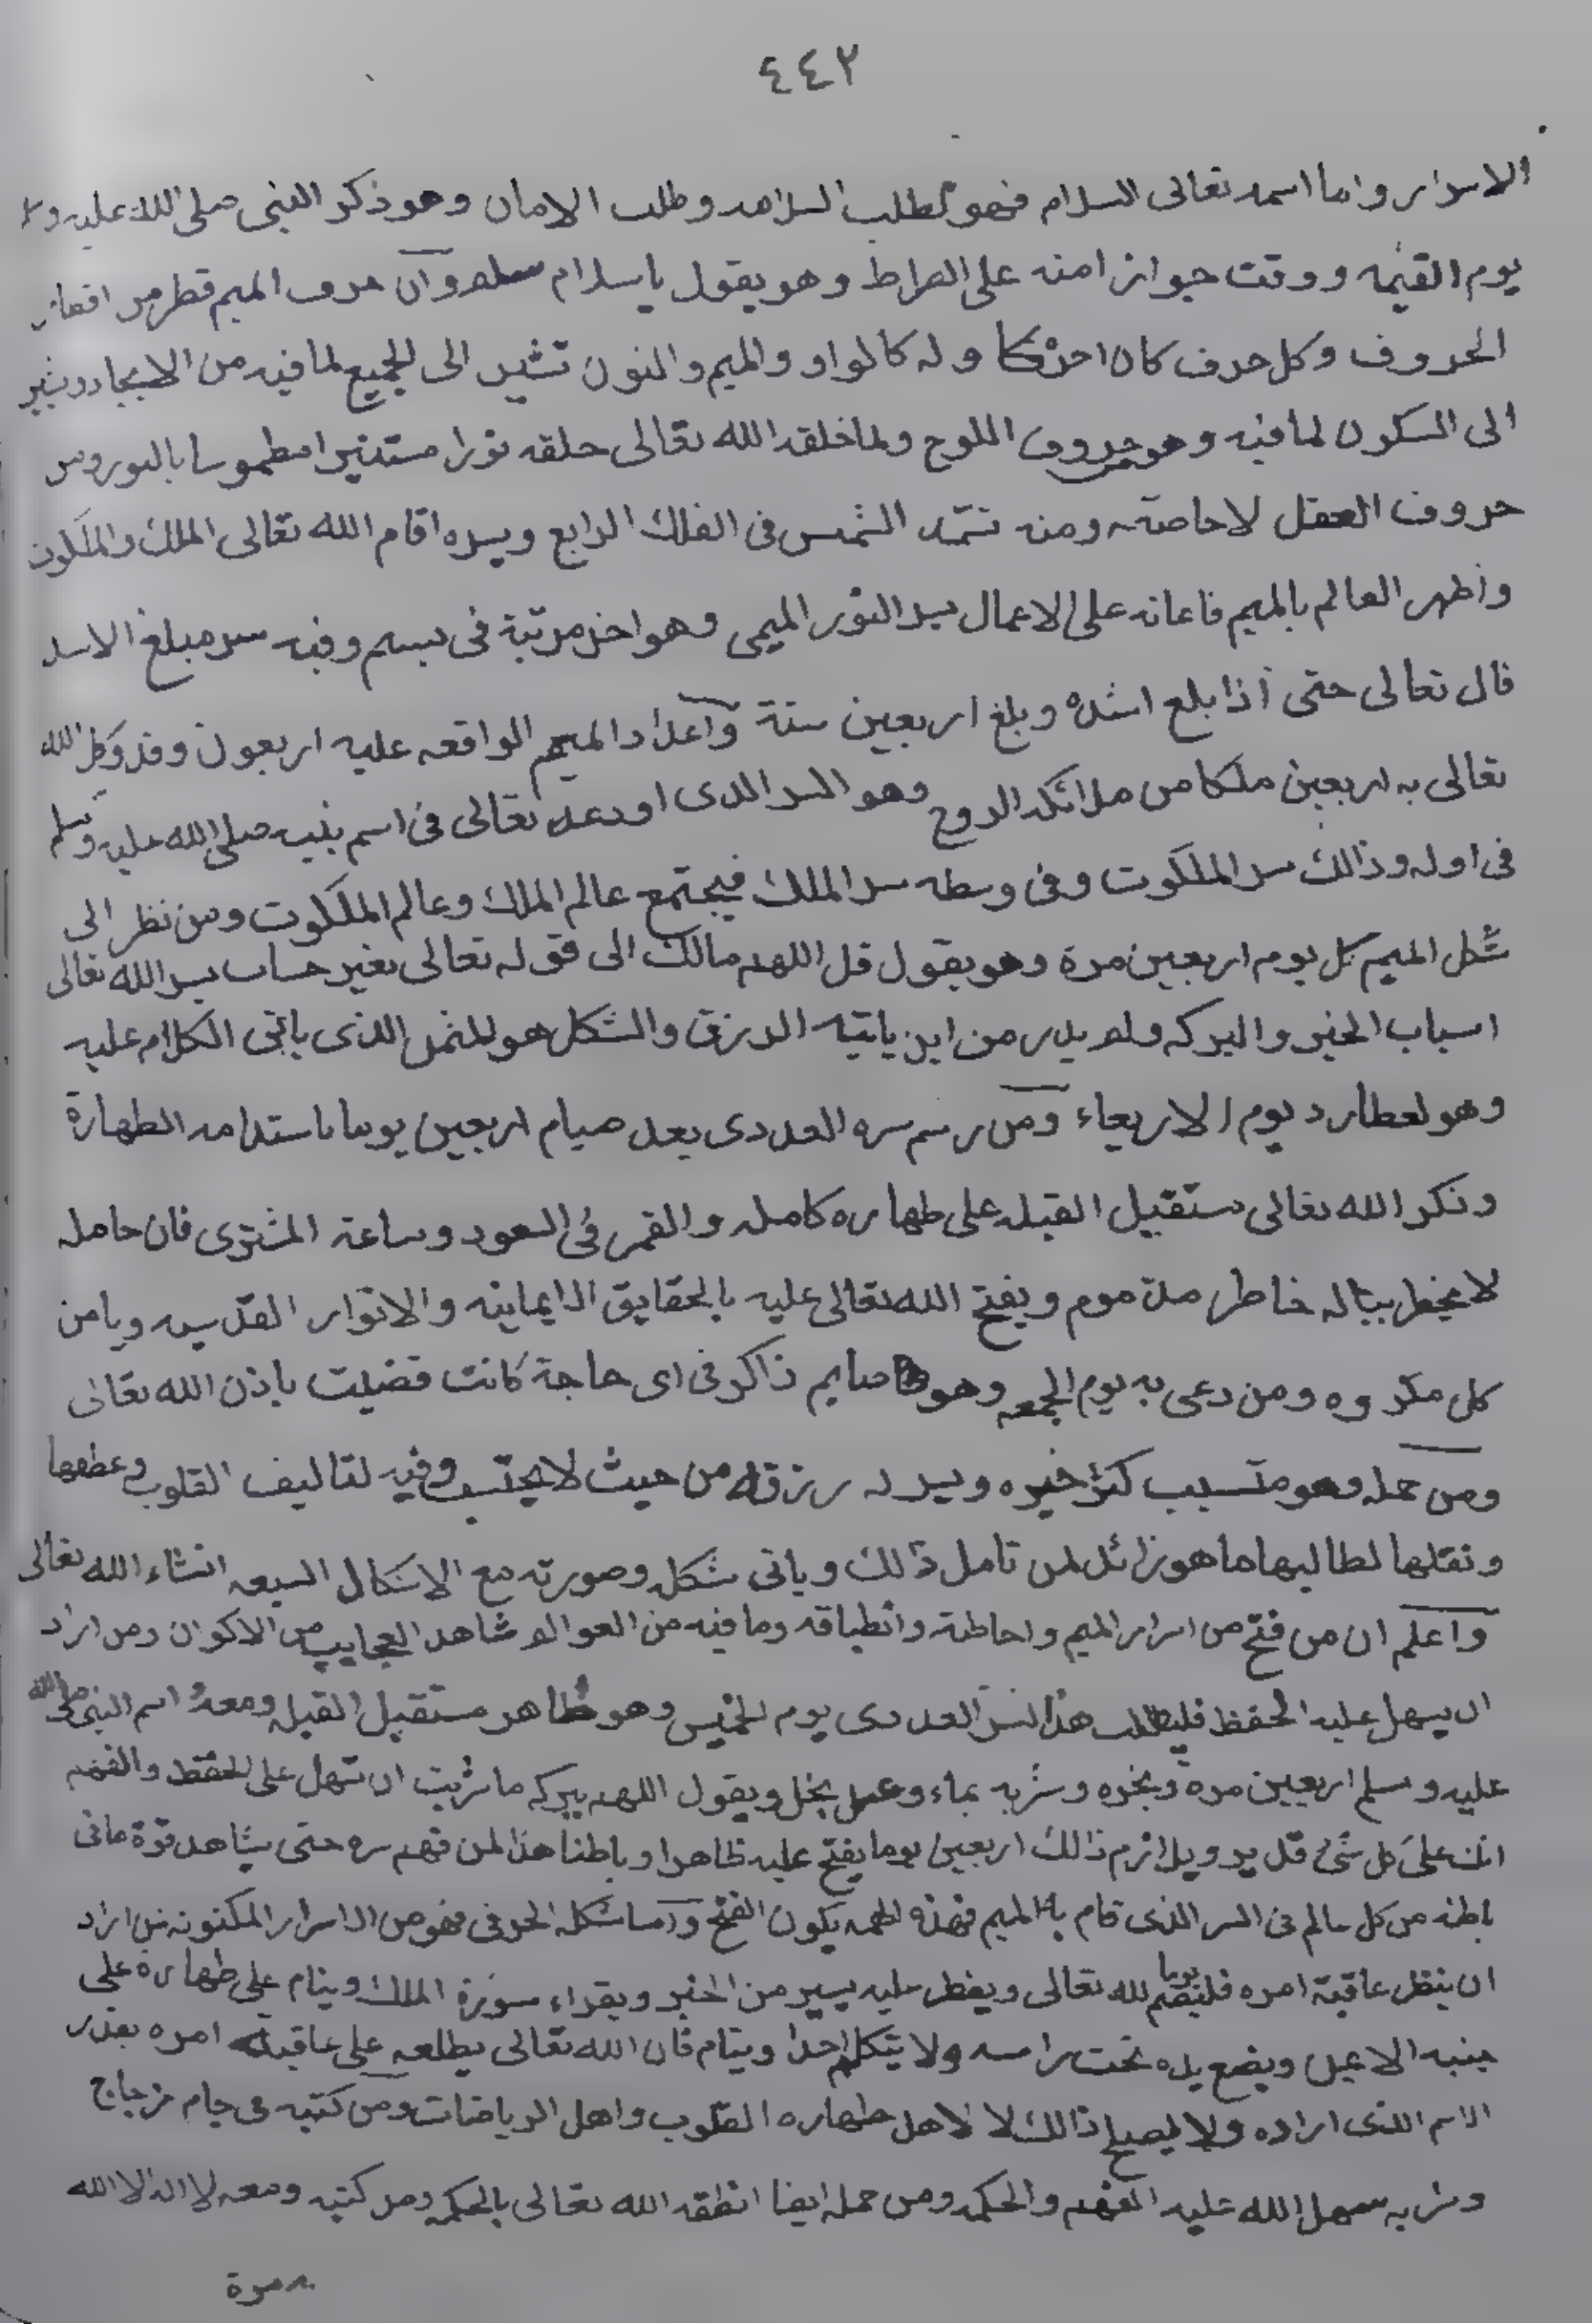 ٤٤٢
الاسرار واما اسمه تعالى السلام فهو لطلب السلامه وطلب الامان وهو ذكر النبى صلى الله عليه
يوم القيمه ووقت جواز امته على الصراط وهو يقول ياسلام سلم وان حرف الميم قطر من اقطار
الحروف وكل حرف كان اخره كا وله كالواو والميم والنون تشير الى الجميع لما فيه من الايجاد ويشير
الى السكون لما فيه وهو من حروف اللوح ولما خلقه الله تعالى خلقه نورا مستنيرا مطموسا بالنور ومن
حروف العقل لاحاصته ومنه تمتد الشمس فى الفلك الرابع وبسره اقام الله تعالى الملك والملكوت
واظهر العالم بالميم فاعانه على الاعمال بسر النور الميمى وهو اخر مرتبة فى بسم وفيه سر مبلغ الاسد
قال تعالى حتى اذا بلغ اشده وبلغ اربعين سنة واعداد الميم الواقعه عليه اربعون وقد وكل الله
تعالى به اربعين ملكا من ملائكه الروح وهو السر الذى اودعه تعالى فى اسم نبيه صلى الله عليه وسلم
فى اوله وذالك سر الملكوت وفى وسطه سر الملك فيجتمع عالم الملك وعالم الملكوت ومن نظر الى
شكل الميم كل يوم اربعين مرة وهو يقول قل اللهم مالك الى قوله تعالى بغير حساب يسر الله تعالى
اسباب الخير والبركه ولم يدر من اين ياتيه الرزق والشكل هو للنمل الذى ياتى الكلام عليه
وهو لعطارد يوم الاربعاء ومن رسم سره العددى بعد صيام اربعين يوما باستدامه الطهارة
وذكر الله تعالى مستقبل القبله على طهاره كامله والقمر فى السعود وساعة المشترى فان حامله
لا يخطر بباله خاطر مذموم ويفتح الله تعالى عليه بالحقايق الايمانيه والانوار القدسيه ويامن
كل مكروه ومن دعى به يوم الجمعه وهو صايم ذاكر فى اى حاجة كانت قضيت باذن الله تعالى
ومن حمله وهو متسبب كثر خيره ويسر له رزقه من حيث لا يحتسب وفيه لتاليف القلوب وعطفها
ونقلها لطالبها ما هو زائد لمن تامل ذالك وياتى شكله وصورته مع الاشكال السبعه انشاء الله تعالى
واعلم ان من فتح من اسرار الميم واحاطته وانطباقه وما فيه من العوالم شاهد العجايب من الاكوان ومن اراد
ان يسهل عليه الحفظ فليكتب هذا السر العددى يوم الخميس وهو طاهر مستقبل القبله ومعه اسم النبى صلى الله
عليه وسلم اربعين مرة وبخره وشربه بماء وعسل نحل ويقول اللهم ببركه ما شربت ان تسهل على الحفظ والفهم
انك على كل شئ قدير ويلازم ذالك اربعين يوما يفتح عليه ظاهرا وباطنا هذا لمن فهم سره حتى يشاهد قوة مافى
باطنه من كل عالم فى السر الذى قام به الميم فهذه يكون الفتح واما شكله الحرفى فهو من الاسرار المكنونه فمن اراد
ان ينظر عاقبة امره فليصم يوما لله تعالى ويفطر عليه يسير من الخبز ويقراء سورة الملك وينام على طهاره على
جنبه الايمن ويضع يده تحت راسه ولا يتكلم احدا وينام فان الله تعالى يطلعه على عاقبة امره بقدر
الاسم الذى اراده ولا يصلح ذالك لا لاهل طهاره القلوب واهل الرياضات ومن كتبه فى جام زجاج
وشربه سهل الله عليه الفهم والحكمه ومن حمله ايضا انطقه الله تعالى بالحكمه ومن كتبه ومعه لا اله الا الله
مرة